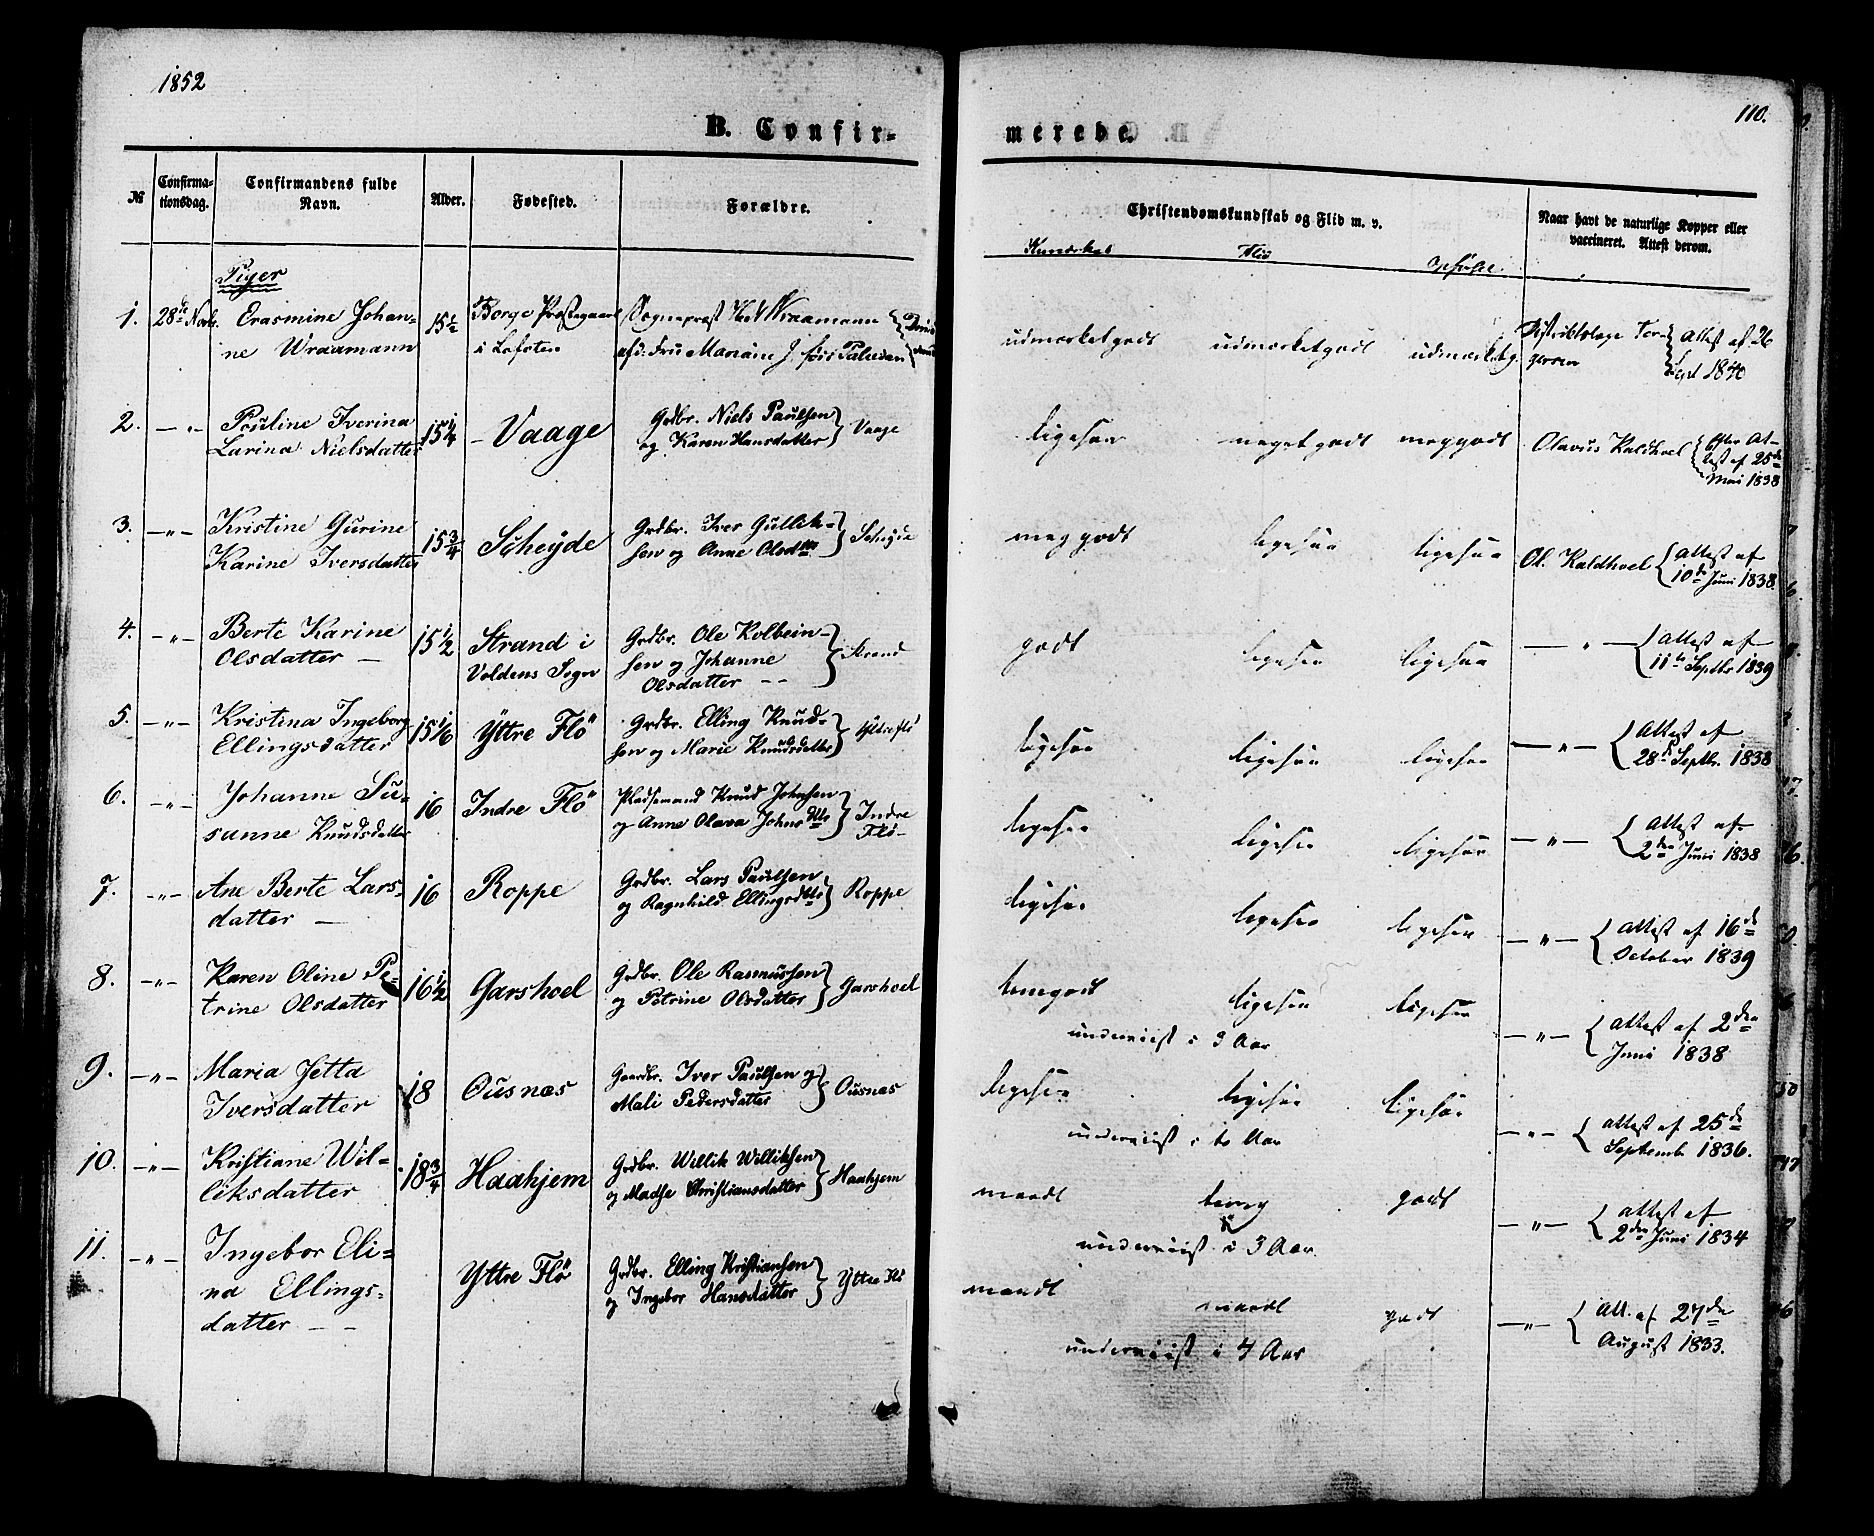 1852
110.
B. Confir-
merede.
№
Confirma-
tionsdag.
Confirmandens fulde
Navn.
Alder.
Fødested.
Forældre.
Christendomskundskab og Flid m. v.
Naar havt de naturlige Kopper eller
vaccineret. Attest derom.
Kundskab Flid Opførsel
Piger
1. 28de Novbr. Erasmine Johan-
ne Wraamann
15½
Borge Præstegaard
i Lofoten
Sognepræst Wraamann
afd. Fru Mariane J. født Paludan
udmærket godt udmærket godt udmærket g.
Distriktslæge
Attest af 26
Sept 1840
2. — " — Pouline Iverina
Larina Nielsdatter
15¼
Vaage
Grdbr. Niels Paulsen
og Karen Hansdatter } Vaage
ligesaa meget godt meg godt
Olavus Kaldhoel { Efter At-
test af 25de
Mai 1838
3. — " — Kristine Gurine
Karine Iversdatter
15¾
Scheyde
Grdbr. Iver Gullik-
sen og Anne Olsdtr } Scheyde
meg godt ligesaa ligesaa
Ol. Kaldhoel { Attest af
10de Juni 1838.
4. — " — Berte Karine
Olsdatter —
15½
Strand i
Voldens Sogn
Grdbr. Ole Kolbein-
sen og Johanne
Olsdatter — } Strand
godt ligesaa ligesaa
— " — { Attest af
11te Septbr 1839
5. — " — Kristina Ingeborg
Ellingsdatter
15 1/6
Yttre Flö
Grdbr. Elling Knud-
sen og Marie Knudsdatter } Yttre Flö
ligesaa ligesaa ligesaa
— " — { Attest af
28de Septbr. 1838
6. — " — Johanne Su-
sanne Knudsdatter
16
Indre Flö
Pladsemand Knud Johnsen
og Anne Olava Johnsdtr } Indre
Flö-
ligesaa ligesaa ligesaa
— " — { Attest af
2den Juni 1838
7. — " — Ane Berte Lars-
datter —
16
Roppe
Grdbr. Lars Paulsen
og Ragnhild Ellingsdtr } Roppe
ligesaa ligesaa ligesaa
— " — { Attest af 16de
October 1839
8. — " — Karen Oline Pe-
trine Olsdatter
16½
Garshoel
Grdbr. Ole Rasmussen
og Petrine Olsdatter } Garshoel
temgodt ligesaa ligesaa
underviist i 3 Aar
— " — { Attest af 2den
Juni 1838
9. — " — Maria Jetta
Iversdatter
18
Ousnæs
Gaardbr. Iver Paulsen og
Mali Pedersdatter } Ousnæs
ligesaa ligesaa ligesaa
underviist i to Aar
— " — { Attest af 25de
Septemb 1836.
10. — " — Kristiane Wil-
liksdatter
18¾
Haahjem
Grdbr. Willik Williksen
og Madse Christiansdatter } Haahjem
maadl godt
underviist i 3 Aar.
— " — { Attest af
2den Juni 1834
11. — " — Ingebor Eli-
na Ellings-
datter — —
Yttre Flö
Grdbr. Elling Kristiansen
og Ingebor Hansdatter } Yttre Flö
maadl maadl godt
underviist i 4 Aar
— " — { Att. af 27de
August 1833.